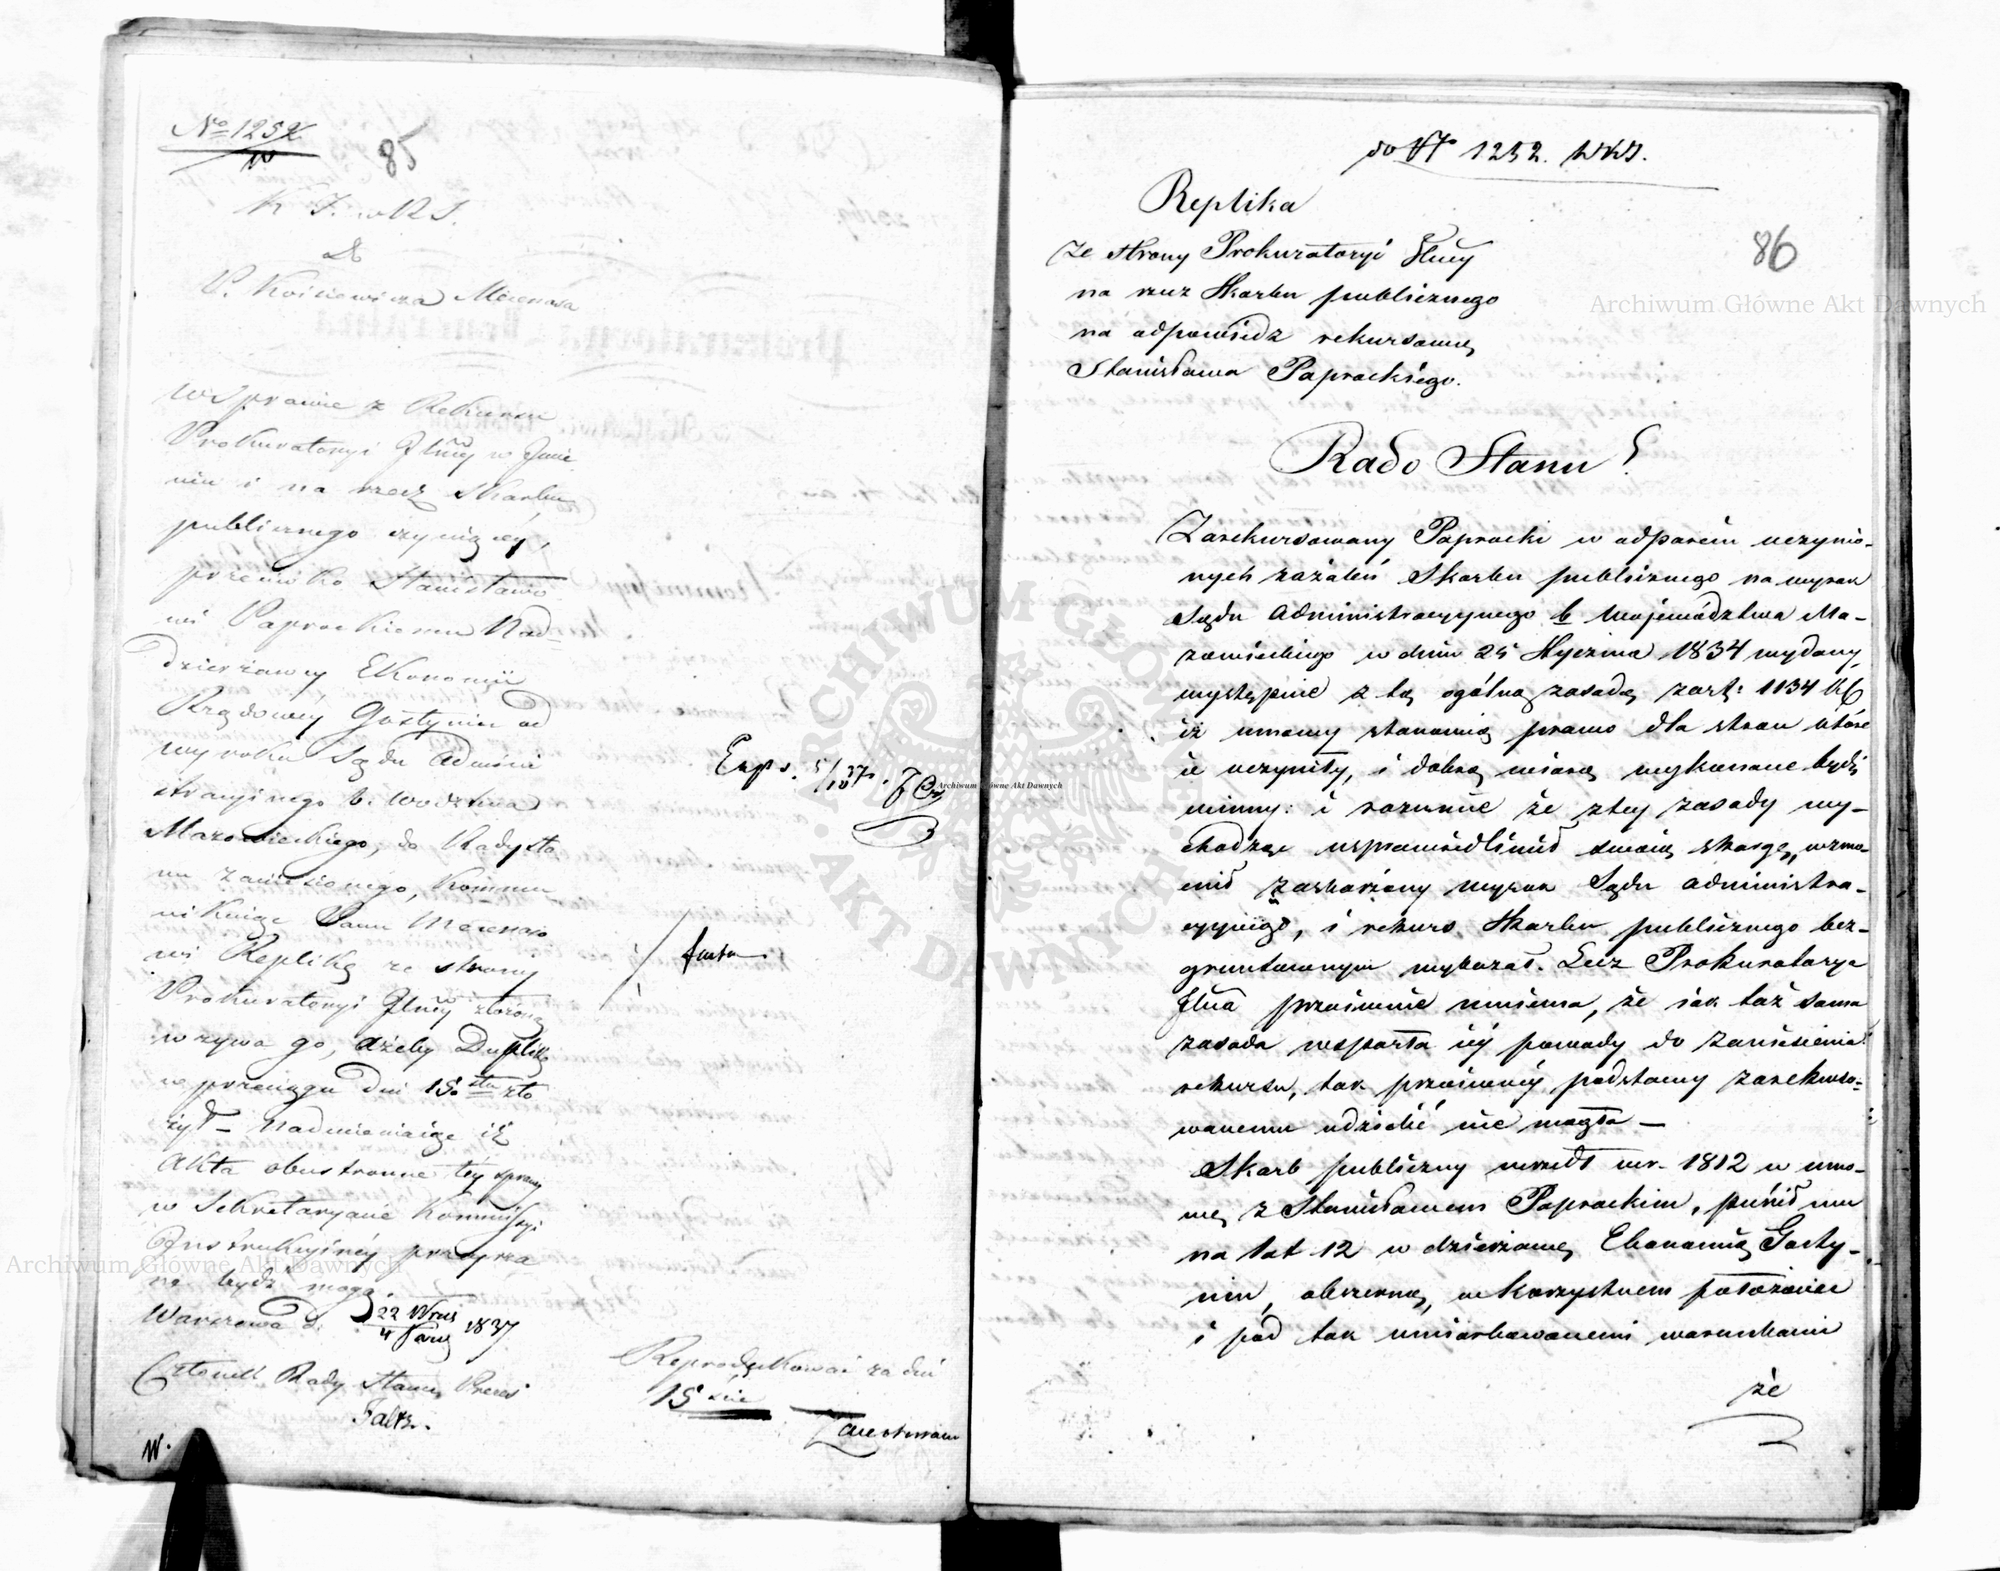 No 1252
W
85
K. J. R. S.
Do
P. Kościewicza Mecenasa
W Sprawie z Rekursu
Prokuratoryi Jlnéy w Imie
niu i na rzecz Skarbu
publicznego czyniącéy,
przeciwko Stanisławo
wi Paprockiemu Nad
dzierżawcy Ekonomii
Rządowéy Gostynin od
wyroku Sądu Admini
stracyinego b. Wodztwa
Mazowieckiego, do Rady Sta
nu zaniesionego, kommu
nikuiąc Panu Mecenaso
wi Replikę ze strony
Prokuratoryi Jlnéy złożoną
wzywa go, ażeby Duplikę
w przeciągu dni 15stu zło
żył – Nadmieniaiąc iż
Akta obustronne téy sprawy
w Sekretaryacie Kommissyi
Instrukcyinéy przeyrza
ne bydź mogą.
Warszawa d. 22 Wrześ / 4 Paźd 1837
Członek Rady Stanu Prezes
Faltz.
W.
Exp. 5/10 37.
Reprodukować za dni
15 ście
do No 1252. WKJ.
86
Replika
Ze strony Prokuratoryi Jlney
na rzecz Skarbu publicznego
na odpowiedz rekursową
Stanisława Paprockiego.
Rado Stanu!
Zarekursowany Paprocki w odparciu uczynio-
nych zażaleń Skarbu publicznego na wyrok
Sądu Administracyynego b Województwa Ma-
zowieckiego w dniu 25 Stycznia 1834 wydany,
występuie z tą ogólną zasadą z art: 1134 KC
iż umowy stanowią prawo dla stron które
ie uczyniły, i dobrą wiarą wykonane bydź
winny: i rozumie że z tey zasady wy-
chodząc usprawiedliwił swoią skargę, wzmo-
cnił zaskarżony wyrok Sądu administra-
cyynego, i rekurs Skarbu publicznego bez-
gruntownym wykazał. Lecz Prokuratorya
Jlna przeciwnie mniema, że iak taż sama
zasada wsparła iéy powody do zaniesienia
rekursu, tak przeciwnéy podstawy zarekurso-
wanemu udzielić nie mogła –
Skarb publiczny wszedł w r. 1812 w umo-
wę z Stanisławem Paprockim, puścił mu
na lat 12 w dzierżawę Ekonomią Gosty-
nin, obszerną, w korzystnem położeniu
i pod tak umiarkowanemi warunkami
że
Archiwum Główne Akt Dawnych
Archiwum Główne Akt Dawnych
Archiwum Główne Akt Dawnych
ARCHIWUM GŁÓWNE AKT DAWNYCH